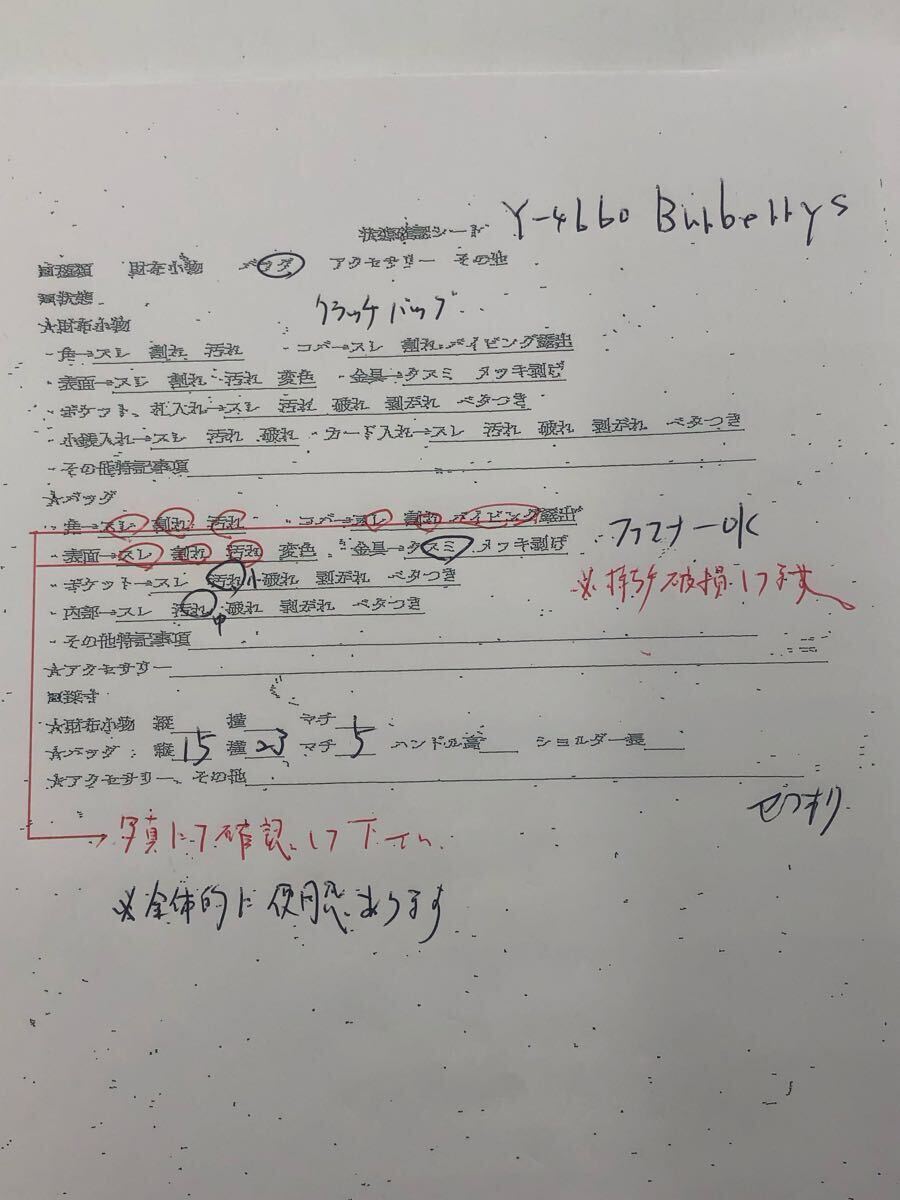 状態確認シート Y-4660 Burberrys
■種類 財布小物 バッグ アクセサリー その他
■状態
クラッチバッグ
★財布小物
・角→スレ 割れ 汚れ ・コバ→スレ 割れ パイピング露出
・表面→スレ 割れ 汚れ 変色 ・金具→クスミ メッキ剥げ
・ポケット、札入れ→スレ 汚れ 破れ 剥がれ ベタつき
・小銭入れ→スレ 汚れ 破れ ・カード入れ→スレ 汚れ 破れ 剥がれ ベタつき
・その他特記事項
★バッグ
・角→スレ 割れ 汚れ ・コバ→スレ 割れ パイピング露出
ファスナーOK
・表面→スレ 割れ 汚れ 変色 ・金具→クスミ メッキ剥げ
・ポケット→スレ 汚れ小 破れ 剥がれ ベタつき
※持ち手破損してます
・内部→スレ 汚れ 破れ 剥がれ ベタつき
中
・その他特記事項
★アクセサリー
■採寸
★財布小物 縦 横 マチ
★バッグ：縦 15 横 23 マチ 5 ハンドル高 ショルダー長
★アクセサリー、その他
→写真にて確認して下さい
※全体的に使用感あります